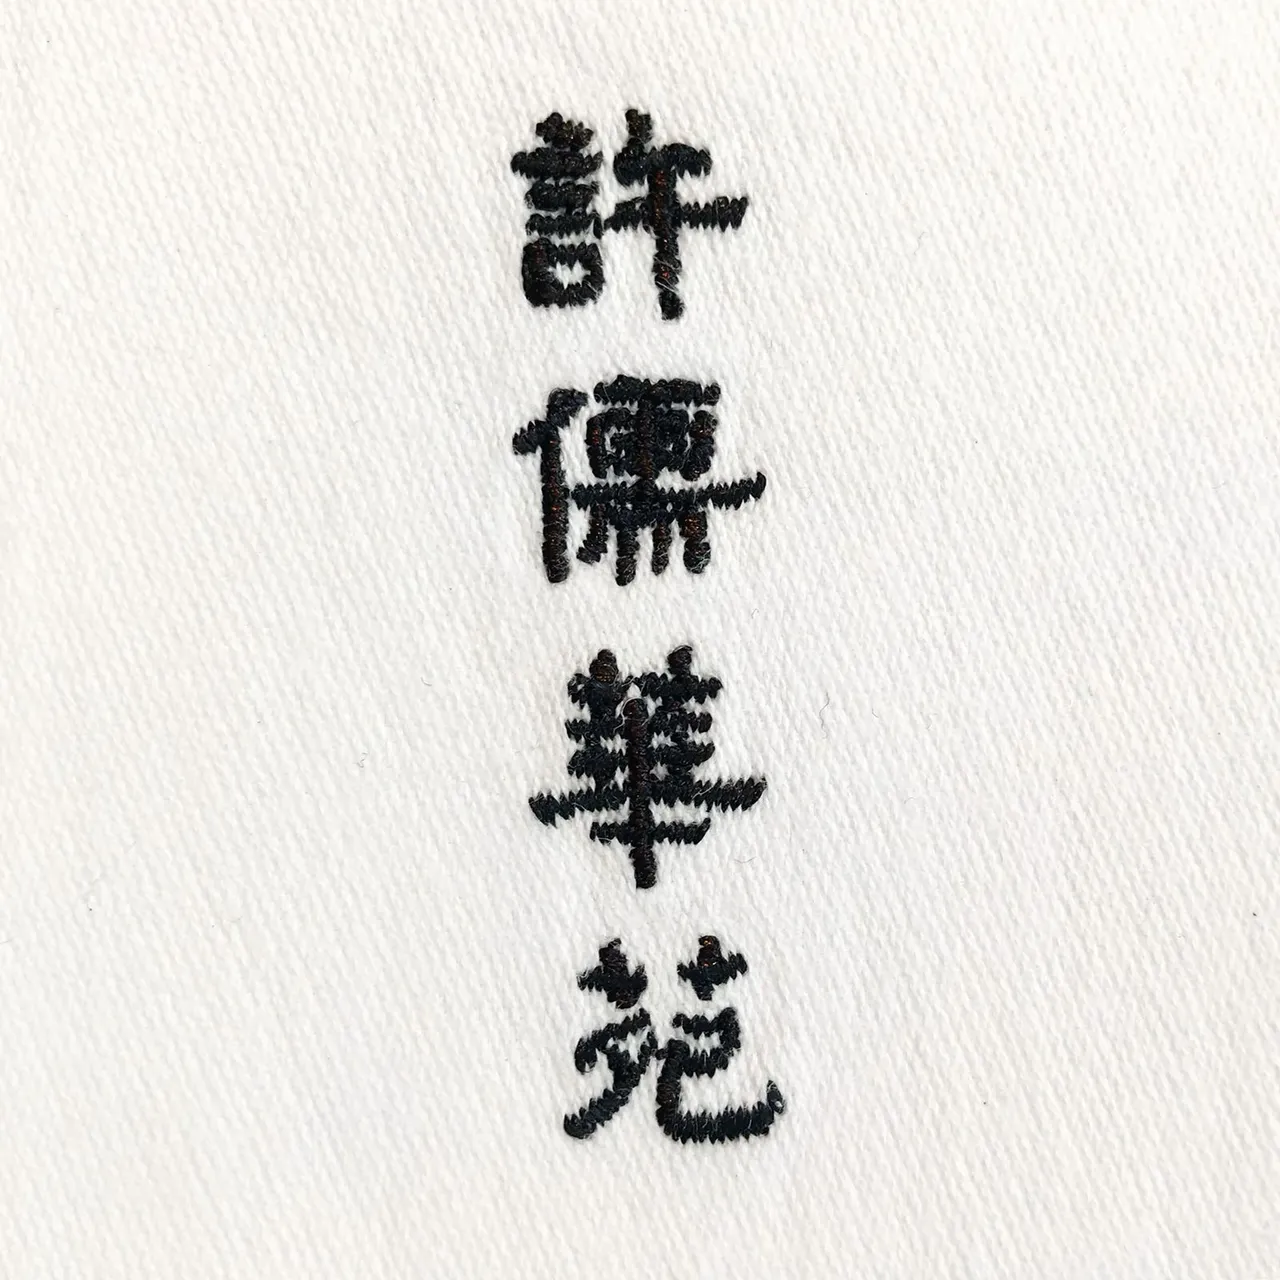 許儒華苑